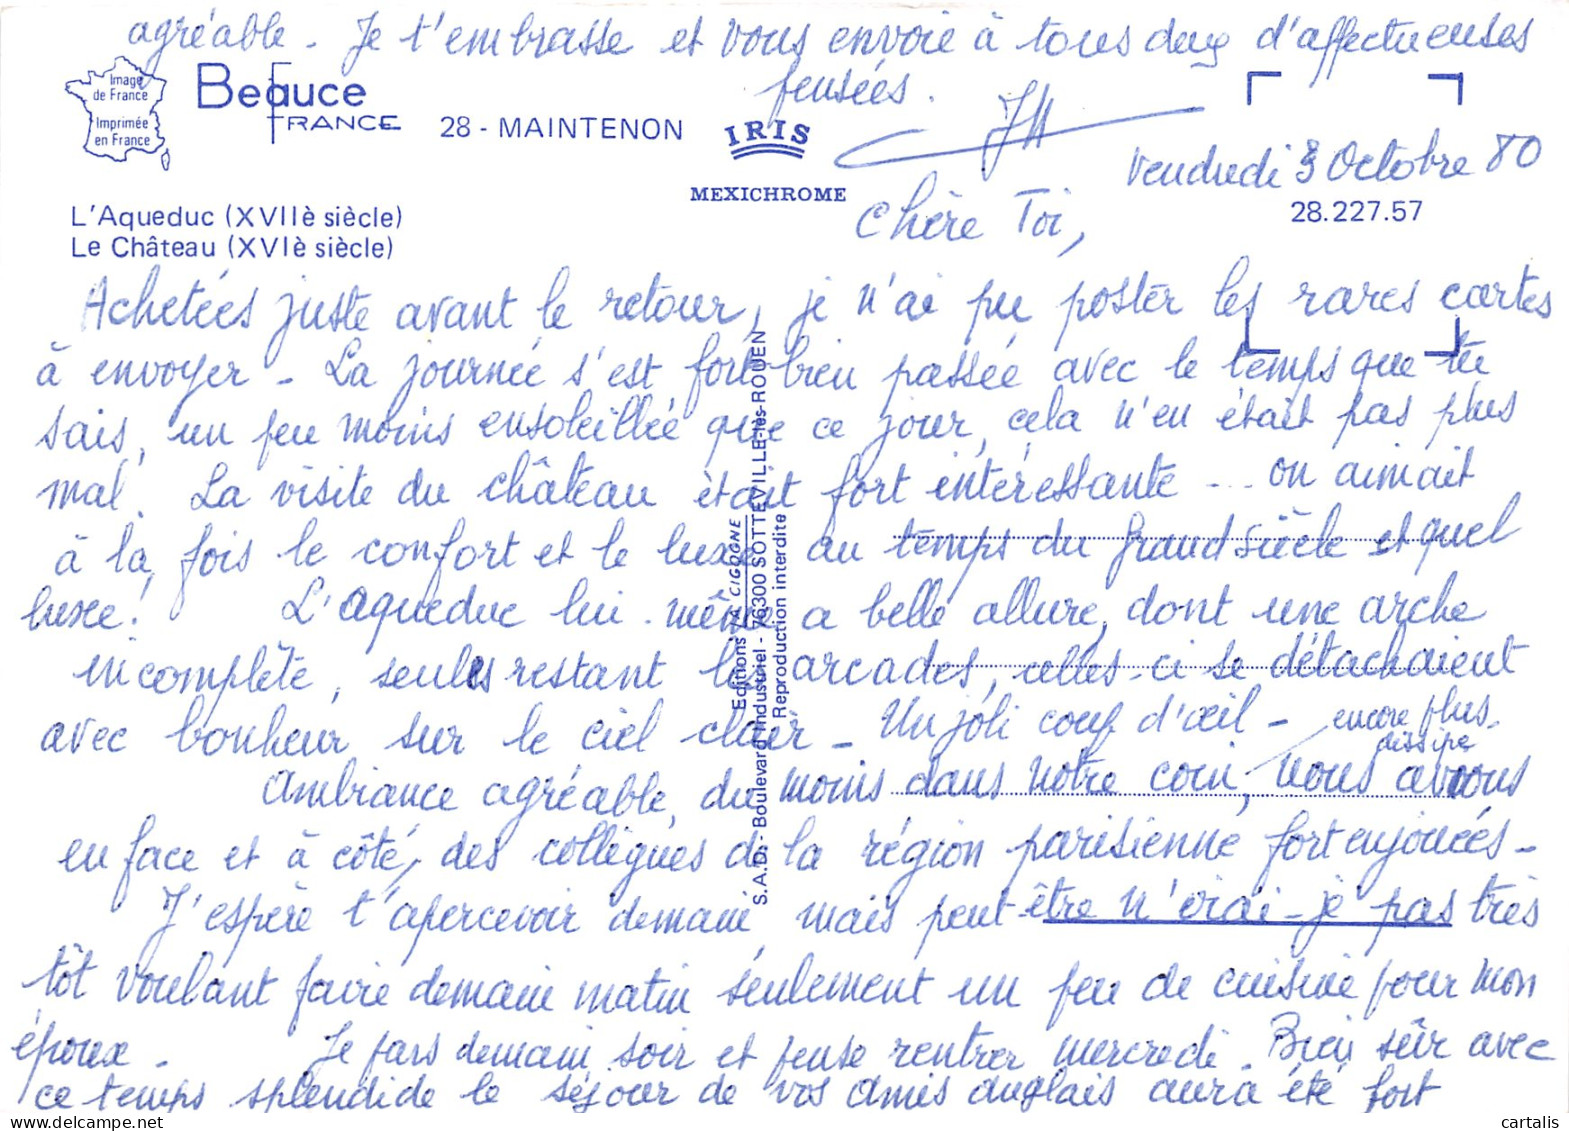 agréable. Je t'embrasse et vous envoie à tous deux d'affectueuses
pensées.
JH
Image
de France
Imprimée
en France
Beauce
FRANCE
28 - MAINTENON
IRIS
MEXICHROME
L'Aqueduc (XVIIè siècle)
Le Château (XVIè siècle)
Vendredi 3 Octobre 80
28.227.57
Chère Toi,
Achetées juste avant le retour, je n'ai pu poster les rares cartes
à envoyer - La journée s'est fort bien passée avec le temps que tu
sais, un peu moins ensoleillée que ce jour, cela n'en était pas plus
mal. La visite du château était fort intéressante ... on aimait
à la fois le confort et le luxe au temps du Grand siècle et quel
luxe! L'aqueduc lui-même a belle allure, dont une arche
incomplète, seules restant les arcades, celles-ci se détachaient
avec bonheur sur le ciel clair - Un joli coup d'œil - encore plus
dissipé
Ambiance agréable, du moins dans notre coin, nous avions
en face et à côté, des collègues de la région parisienne fort enjouées -
J'espère t'apercevoir demain mais peut-être n'irai-je pas très
tôt voulant faire demain matin seulement un peu de cuisine pour mon
époux - Je pars demain soir et pense rentrer mercredi. Bien sûr avec
ce temps splendide le séjour de vos amis anglais aura été fort
Editions LA CIGOGNE
S.A.D. - Boulevard Industriel - 76300 SOTTEVILLE-lès-ROUEN
Reproduction interdite
cartalis